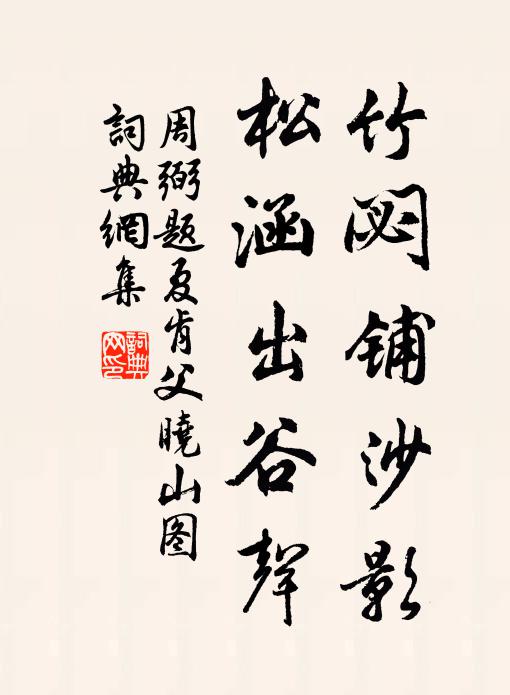 竹閟铺沙影
松涵出谷聲
周弼题夏肯父曉山图
詞典網集
詞典网印